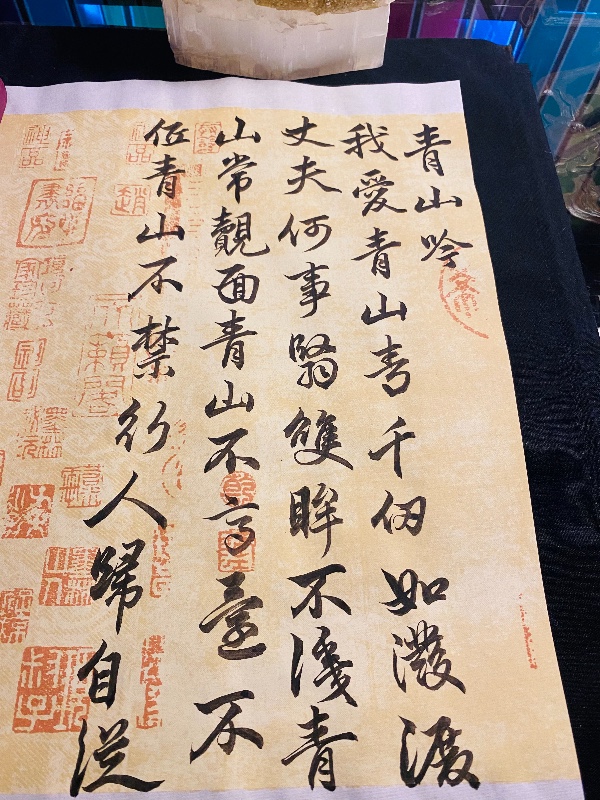 青山吟
我愛青山青千仞如潑
丈夫何事翳雙眸不識青
山常覿面青山不高還不
低青山不禁行人歸自從